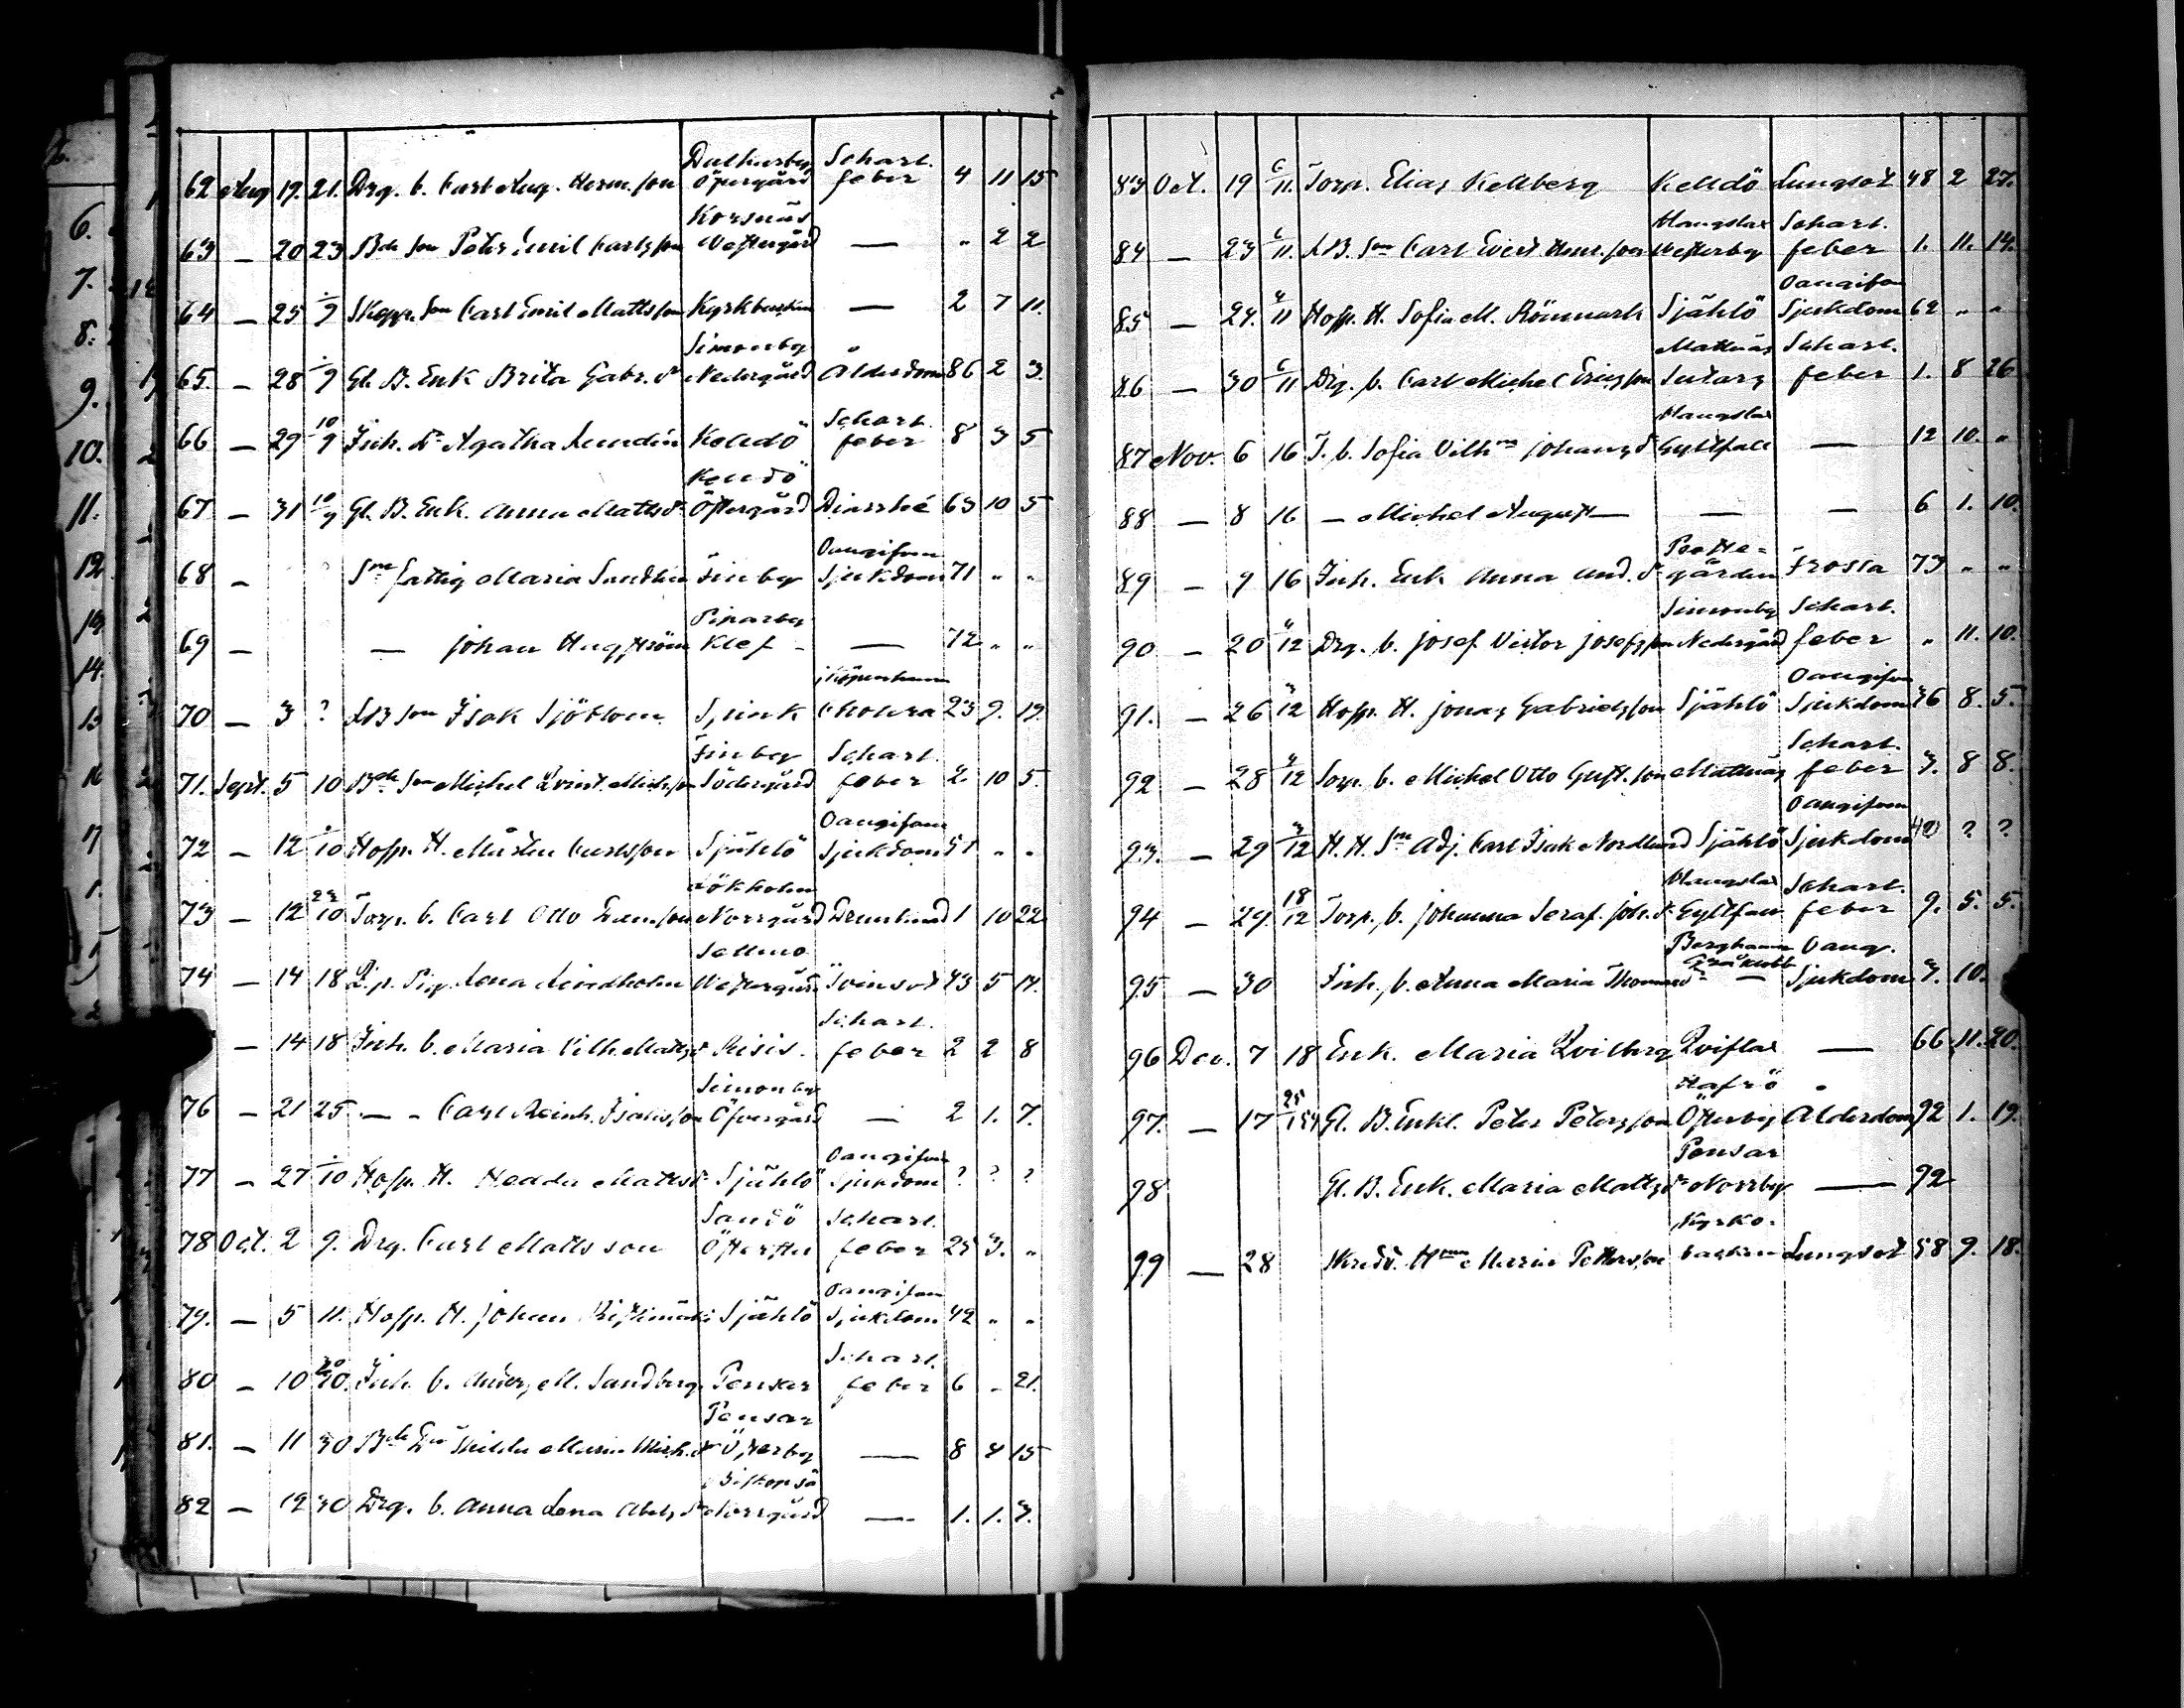 62 Aug 19. 21. Drg. b. Carl Aug. Herm.son Öfvergård Schart. feber 4 11 15
63 — 20 23 Bde Son Peter Emil Carlsson Korsnäs Westergård — „ 2 2
64 — 25 /9 Skepp. Son Carl Emil Mattsson Kyrkbacken — 2 7 11.
65. — 28 /9 Gl. B. Enk Brita Gabr. dr Simonby Nedergård Ålderdom 86 2 3.
66 — 29 10/9 Inh. dr Agatha Lundin Kelldö Schart. feber 8 3 5
67 — 31 10/9 Gl. B. Enk. Anna Mattsdr Östergård Diarrhé 63 10 5
68 — Sne fattig Maria Sandhn Finby Oangifven Sjukdom 71 „ „
69 — — Johan Hugström Piparby Klef — 72 „ „
70 — 3 ? LB Son Isak Sjöblom Spink Cholera 23 9. 19.
71. Sept. 5 10 Bde Son Michel Finby Södergård Schart. feber 2. 10 5.
72 — 12 /10 Hosp. H. Mårten Carlsson Själö Oangifven Sjukdom 51 „ „
73 — 12 23/10 Torp. b. Carl Otto Lökholm Norrgård 1 10 22
74 — 14 18 Pig. Lena Lindholm Sellmo Westergård Tvinsot 43 5 14.
— 14 18 Inh. b. Maria Vilh. Mattsdr Schart. feber 2 2 8
76 — 21 25 — „ Carl Reinh. Isaksson Simonby Öfvergård — 2 1. 7.
77 — 27 /10 Hosp. H. Hedda Mattsdr Själö Oangifven Sjukdom ? ? ?
78 Oct. 2 9. Drg. Carl Mattsson Sandö Schart. feber 25 3. „
79. — 5 11. Hosp. H. Johan Själö Oangifven Sjukdom 42 „ „
80 — 10 30/10. Inh. b. Anders M. Sandberg Pensar Schart. feber 6 „ 21.
81. — 11 30 Bde Hilda Maria Mich.dr Pensar Österby — 8 4 15
82 — 12 30 Drg. b. Anna Lena Abels dr Biskopsö Norrgård — 1. 1. 3.
83 Oct. 19 6/11. Torp. Elias Kellberg Kelldö Lungsot 48 2 27.
84 — 23 6/11. LB. Son Carl Evert Henr.son Mangslax Westerby Schart. feber 1. 11. 14.
85 — 24. 4/11 Hosp. H. Sofia M. Rönnmark Själö Oangifven Sjukdom 62 „ „
86 — 30 6/11 Drg. b. Carl Michel Ericsson Mattnäs Sutars Schart. feber 1. 8 26
87 Nov. 6 16 T. b. Sofia Vilhma Johansdr Mangslax Gyltfall — 12 10. „
88 — 8 16 — Michel August — — — 6 1. 10.
89 — 9 16 Inh. Enk Anna And. dr Prostegården Frossa 73 „ „
90 — 20 4/12 Drg. b. Josef Victor Josefsson Simonby Nedergård Schart. feber „ 11. 10.
91. — 26 3/12 Hosp. H. Jonas Gabrielsson Själö Oangifven Sjukdom 36 8. 5.
92 — 28 3/12 Torp. b. Michel Otto Gust.son Mattnäs Schart. feber 3. 8 8.
93. — 29 3/12 H. H. Sne Adj. Carl Isak Nordlund Själö Oangifven Sjukdom 40 ? ?
94 — 29. 18/12 Torp. b. Johanna Seraf. Joh. dr Mangslax Gyltfall Schart. feber 9. 5. 5.
95 — 30 Inh. b. Anna Maria Thomasdr Berghamn Oang. Sjukdom 3. 10.
96 Dec. 7 18 Enk. Maria Qvilberg Qviflax — 66 11. 20.
97. — 17 25 Gl. B. Enkl. Peter Petersson Hafrö Österby Ålderdom 92 1. 19.
98 Gl. B. Enk. Maria Mattsdr Pensar Norrby — 92
99 — 28 Maria Pettersson Kyrkobacken Lungsot 58 9. 18.